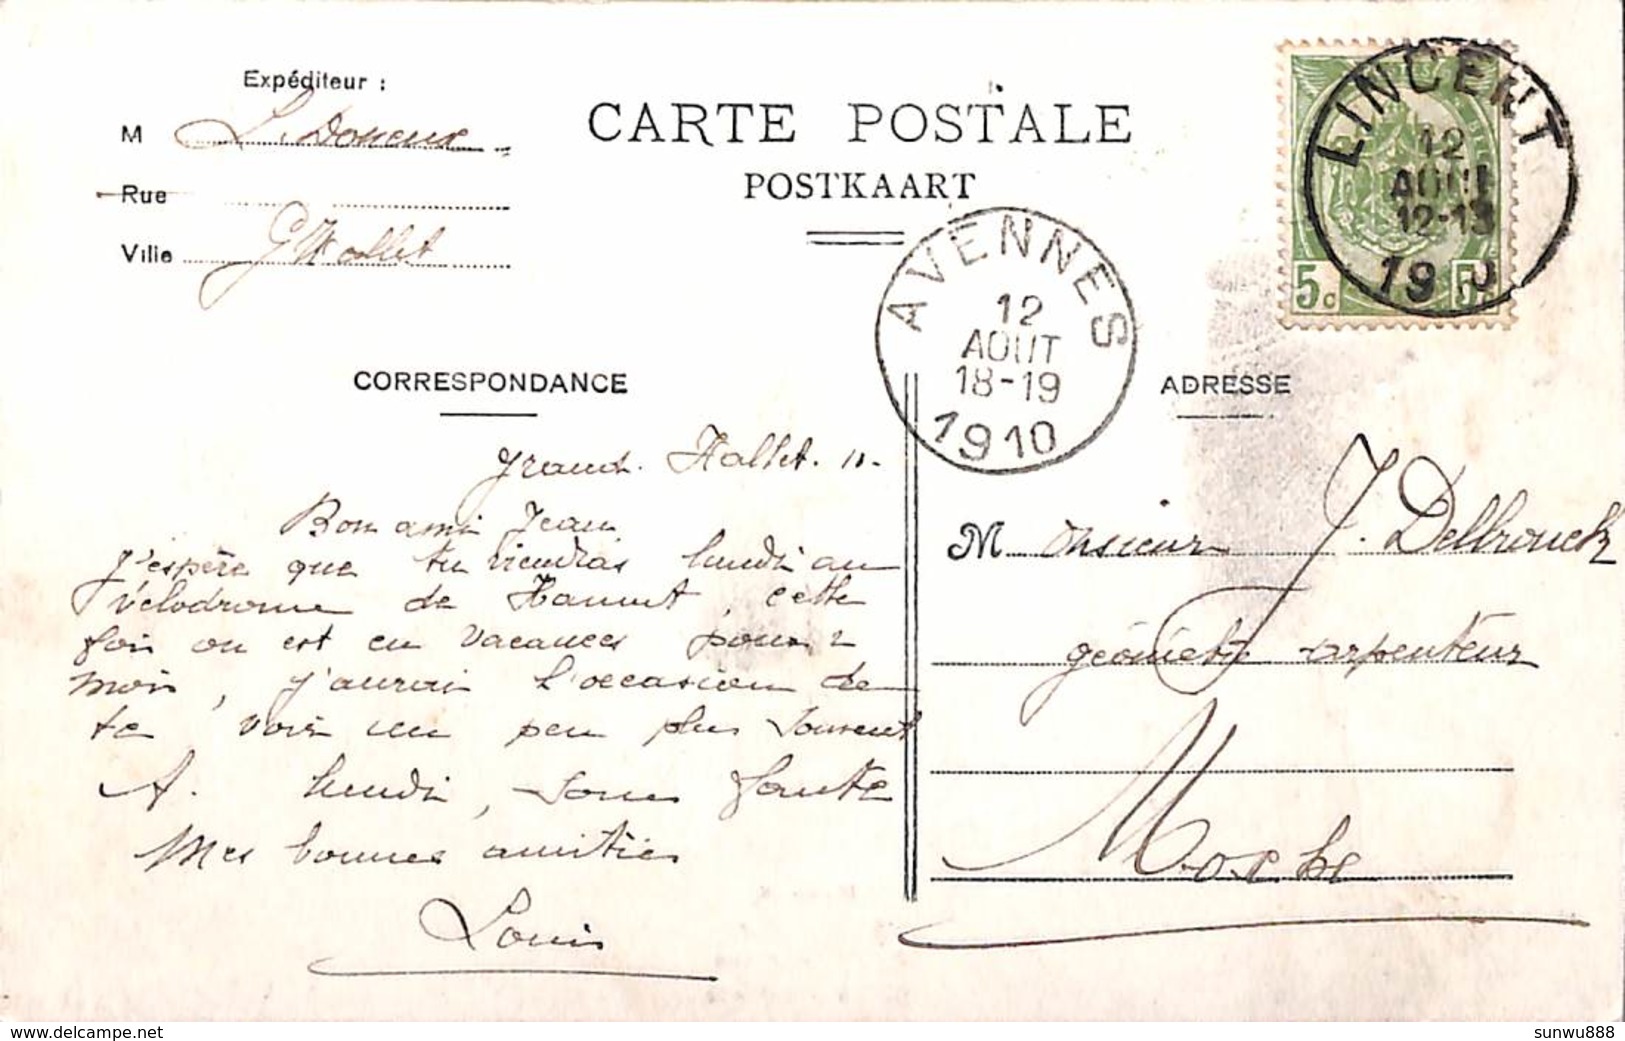 Expéditeur :
M L. Doneux
Rue
Ville Gd Hallet
CARTE POSTALE
POSTKAART
LINCENT
12
AOUT
12-13
1910
5c 5c
AVENNES
12
AOUT
18-19
1910
CORRESPONDANCE
ADRESSE
Grand. Hallet. 11.
Bon ami Jean
J'espère que tu viendras lundi au
vélodrome de Hannut, cette
fois on est en vacances pour 2
mois, j'aurai l'occasion de
te voir un peu plus souvent
A. lundi, sans faute
Mes bonnes amitiés
Louis
Monsieur J. Delbrouck
géomètre arpenteur
Moxhe
delcampe.net
sunwu888